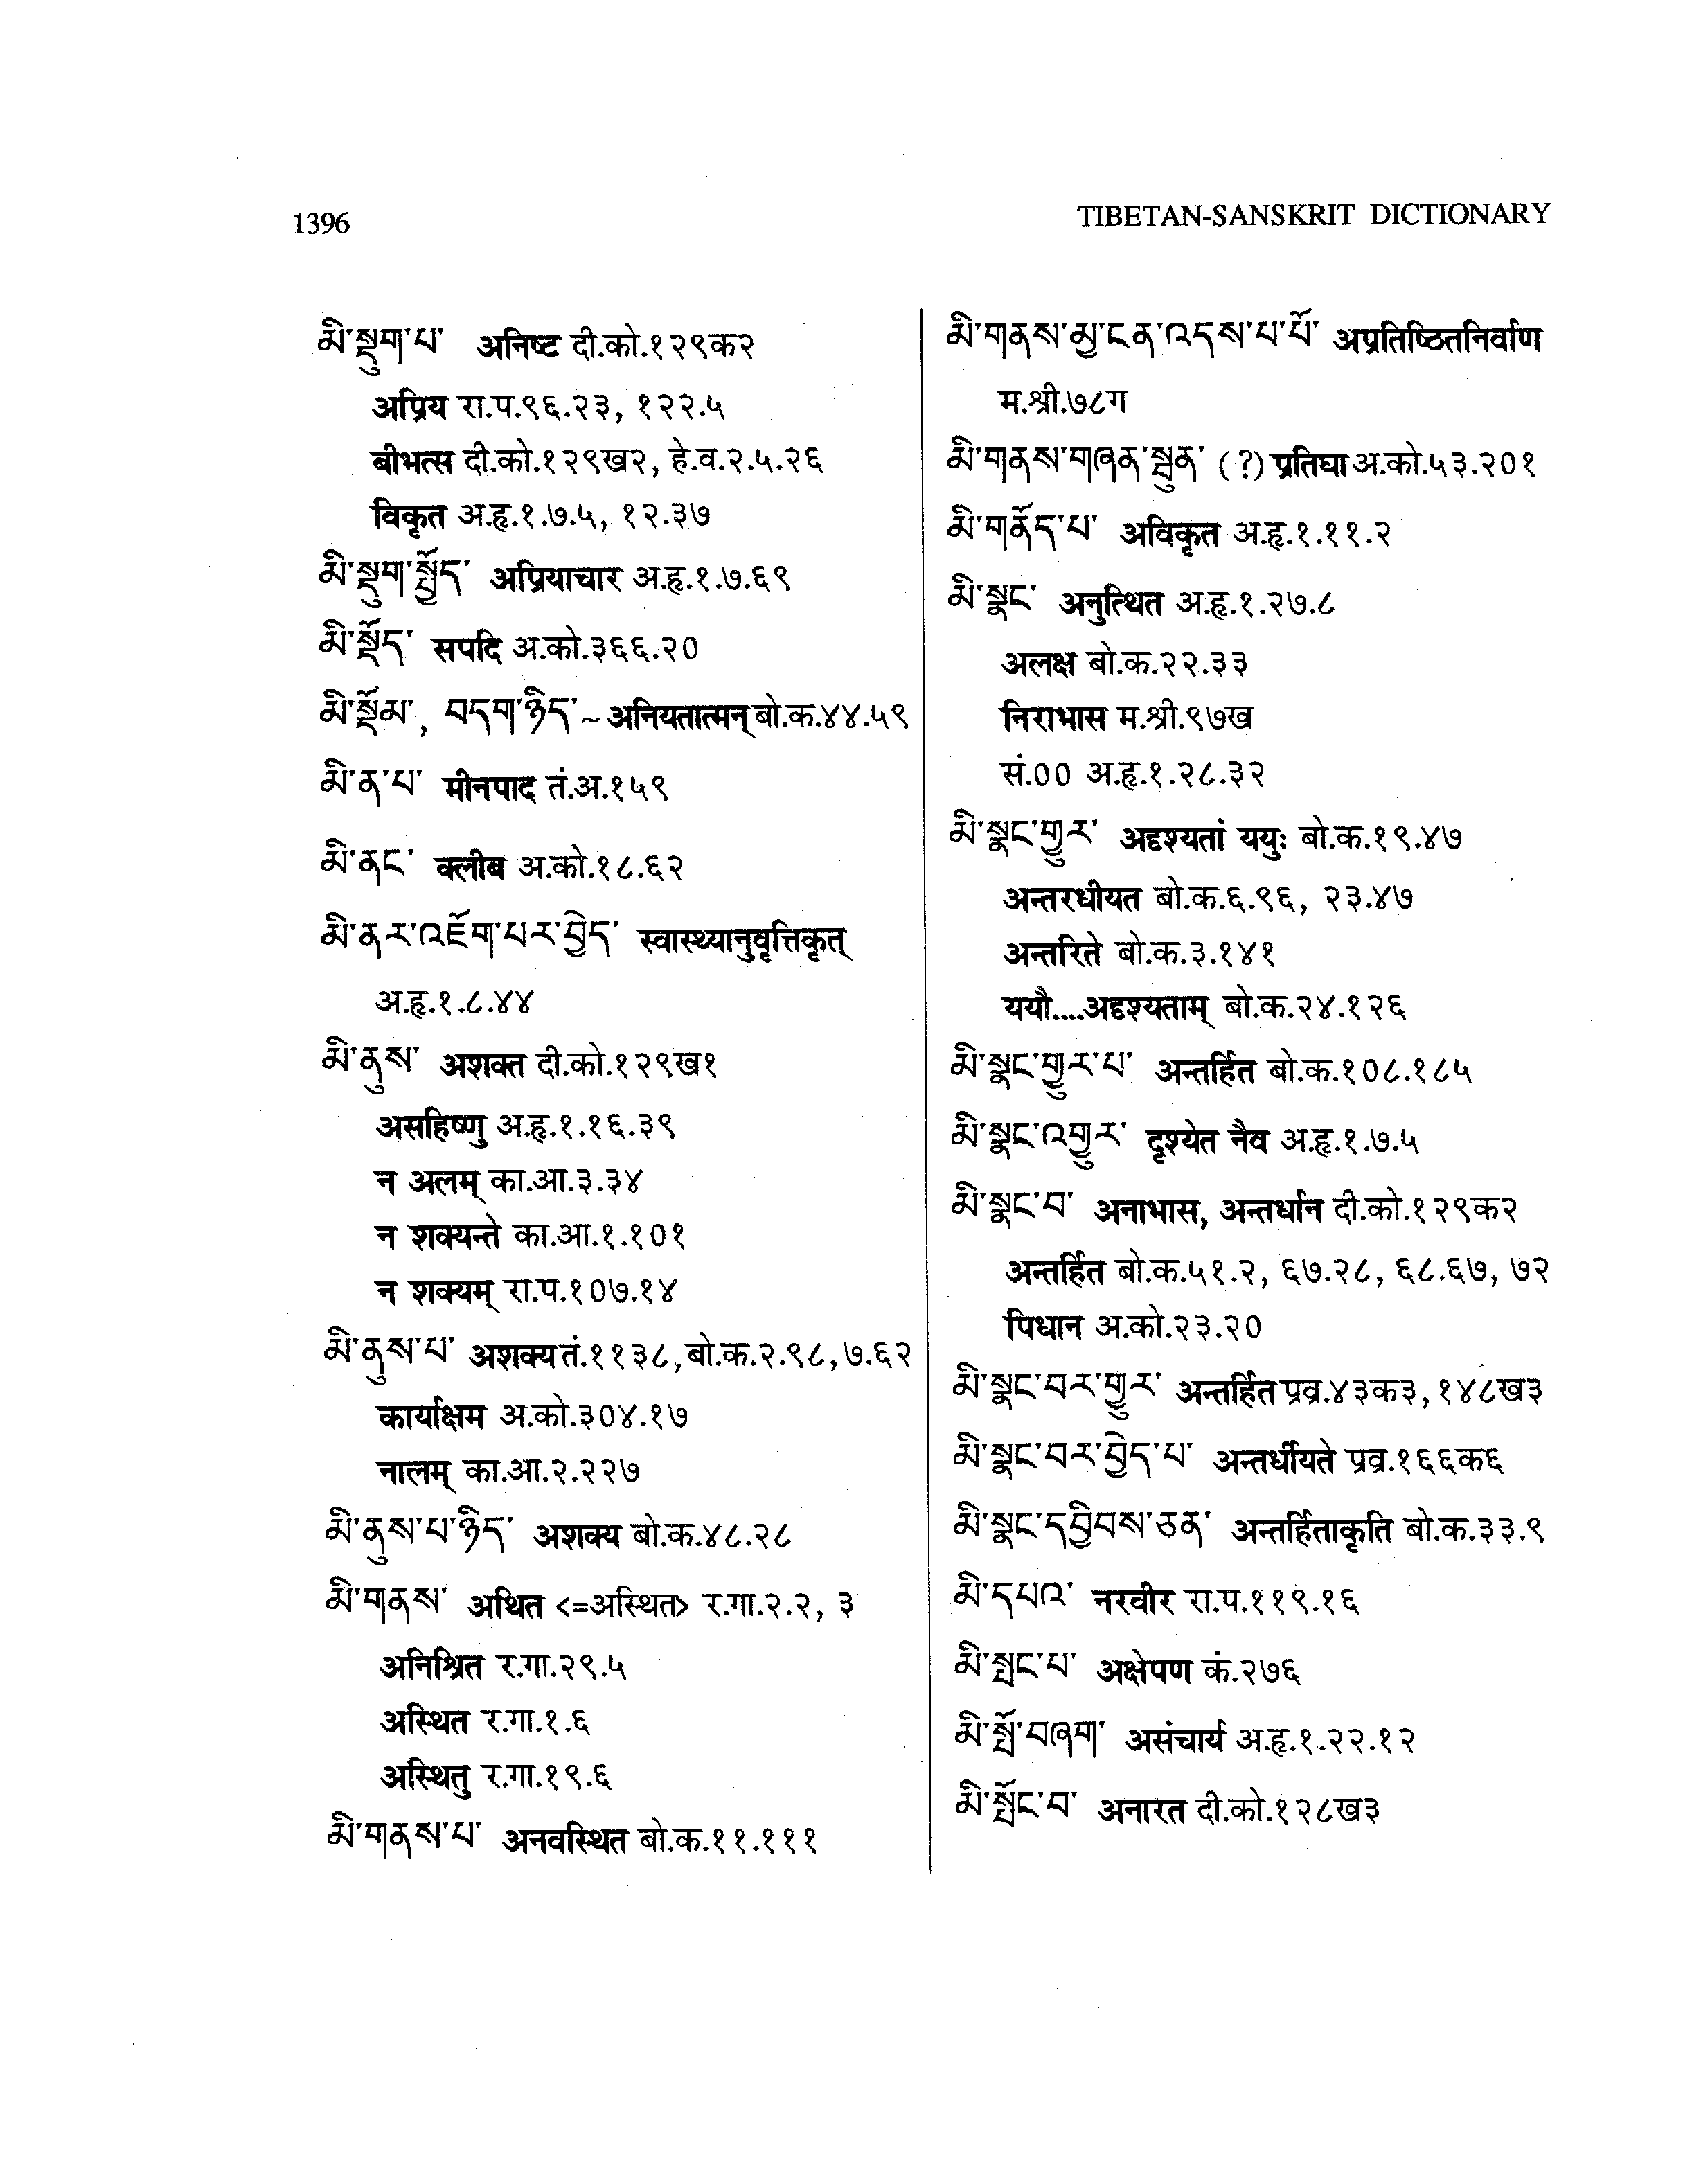 1396
TIBETAN-SANSKRIT DICTIONARY
མི་སྡུག་པ་ अनिष्ट दी.को.१२९क२
अप्रिय रा.प.९६.२३, १२२.५
बीभत्स दी.को.१२९ख२, हे.व.२.५.२६
विकृत अ.हृ.१.७.५, १२.३७
མི་སྡུག་སྤྱོད་ अप्रियाचार अ.हृ.१.७.६९
མི་སྡོད་ सपदि अ.को.३६६.२०
མི་སྡོམ་, བདག་ཉིད་~ अनियतात्मन् बो.क.४४.५९
མི་ན་པ་ मीनपाद तं.अ.१५९
མི་ནང་ क्लीब अ.को.१८.६२
མི་ནར་འཇོག་པར་བྱེད་ स्वास्थ्यानुवृत्तिकृत्
अ.हृ.१.८.४४
མི་ནུས་ अशक्त दी.को.१२९ख१
असहिष्णु अ.हृ.१.१६.३९
न अलम् का.आ.३.३४
न शक्यन्ते का.आ.१.१०१
न शक्यम् रा.प.१०७.१४
མི་ནུས་པ་ अशक्य तं.११३८, बो.क.२.९८, ७.६२
कार्याक्षम अ.को.३०४.१७
नालम् का.आ.२.२२७
མི་ནུས་པ་ཉིད་ अशक्य बो.क.४८.२८
མི་གནས་ अथित <=अस्थित> र.गा.२.२, ३
अनिश्रित र.गा.२९.५
अस्थित र.गा.१.६
अस्थितु र.गा.१९.६
མི་གནས་པ་ अनवस्थित बो.क.११.१११
མི་གནས་མྱ་ངན་འདས་པ་པོ་ अप्रतिष्ठितनिर्वाण
म.श्री.७८ग
མི་གནས་གཞན་སྦུན་ (?) प्रतिघा अ.को.५३.२०१
མི་གནོད་པ་ अविकृत अ.हृ.१.११.२
མི་སྣང་ अनुत्थित अ.हृ.१.२७.८
अलक्ष बो.क.२२.३३
निराभास म.श्री.९७ख
सं.०० अ.हृ.१.२८.३२
མི་སྣང་གྱུར་ अदृश्यतां ययुः बो.क.१९.४७
अन्तरधीयत बो.क.६.९६, २३.४७
अन्तरिते बो.क.३.१४१
ययौ....अदृश्यताम् बो.क.२४.१२६
མི་སྣང་གྱུར་པ་ अन्तर्हित बो.क.१०८.१८५
མི་སྣང་འགྱུར་ दृश्येत नैव अ.हृ.१.७.५
མི་སྣང་བ་ अनाभास, अन्तर्धान दी.को.१२९क२
अन्तर्हित बो.क.५१.२, ६७.२८, ६८.६७, ७२
पिधान अ.को.२३.२०
མི་སྣང་བར་གྱུར་ अन्तर्हित प्रव्र.४३क३, १४८ख३
མི་སྣང་བར་བྱེད་པ་ अन्तर्धीयते प्रव्र.१६६क६
མི་སྣང་དབྱིབས་ཅན་ अन्तर्हिताकृति बो.क.३३.९
མི་དཔའ་ नरवीर रा.प.११९.१६
མི་སྤང་པ་ अक्षेपण कं.२७६
མི་སྤོ་བཞག་ असंचार्य अ.हृ.१.२२.१२
མི་སྤོང་བ་ अनारत दी.को.१२८ख३